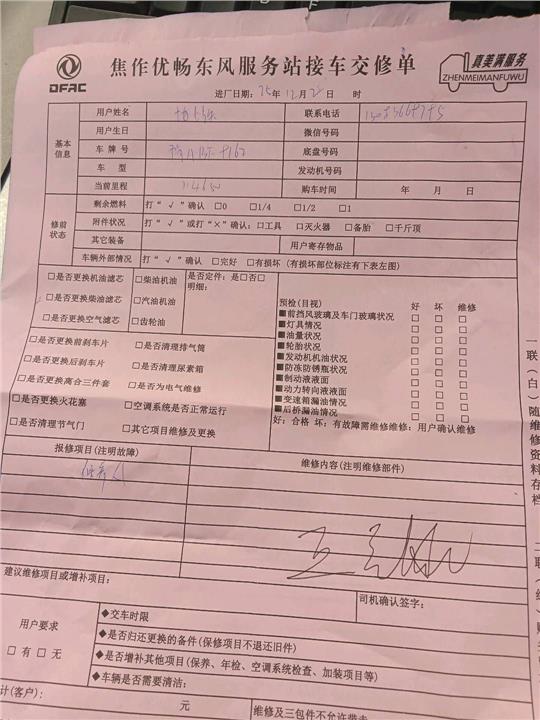 DFAC
焦作优畅东风服务站接车交修单
真美满服务
ZHENMEIMANFUWU
进厂日期: 25年12月 日 时
基本信息
用户姓名 联系电话
用户生日 微信号码
车牌号 底盘号码
车型 发动机号码
当前里程 购车时间 年 月 日
修前状态
剩余燃料 打“√”确认 □0 □1/4 □1/2 □1
附件状况 打“√”或打“×”确认: □工具 □灭火器 □备胎 □千斤顶
其它装备 用户寄存物品
车辆外部情况 打“√”确认 □完好 □有损坏 (有损坏部位标注有下表左图)
□是否更换机油滤芯 □柴油机油 是否定件: 是□否□
□是否更换柴油滤芯 □汽油机油 明细:
□是否更换空气滤芯 □齿轮油
□是否更换前刹车片 □是否清理排气筒
□是否更换后刹车片 □是否清理尿素箱
□是否更换离合三件套 □是否为电气维修
□是否更换火花塞 □空调系统是否正常运行
□是否清理节气门 □其它项目维修及更换
预检(目视) 好 坏 维修
■前挡风玻璃及车门玻璃状况 □ □ □
■灯具情况 □ □ □
■油量状况 □ □ □
■轮胎状况 □ □ □
■发动机机油状况 □ □ □
■防冻防锈瓶状况 □ □ □
■制动液液面 □ □ □
■动力转向液液面 □ □ □
■变速箱漏油情况 □ □ □
■后桥漏油情况 □ □ □
好: 合格 坏: 有故障需维修维修: 用户确认维修
报修项目(注明故障) 维修内容(注明维修部件)
保养
建议维修项目或增补项目:
司机确认签字:
用户要求
□有 □无
◆交车时限
◆是否归还更换的备件(保修项目不退还旧件)
◆是否增补其他项目(保养、年检、空调系统检查、加装项目等)
◆车辆是否需要清洁:
计(客户): 元 维修及三包件不允许带走
一联(白)随维修资料存档
二联